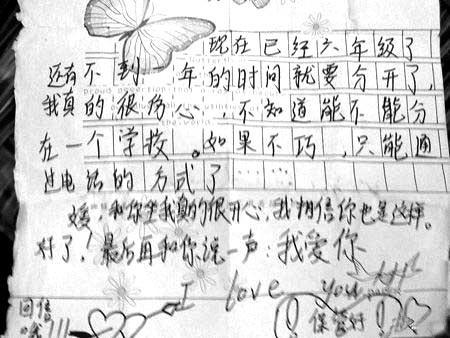 现在已经六年级了
还有不到一年的时间就要分开了,
我真的很伤心,不知道能不能分
在一个学校。如果不巧,只能通
过电话的方式了……
媛,和你坐我真的很开心,我相信你也是这样。
好了!最后再和你说一声:我爱你
I love you!!!
回信
哦!!!
保管好